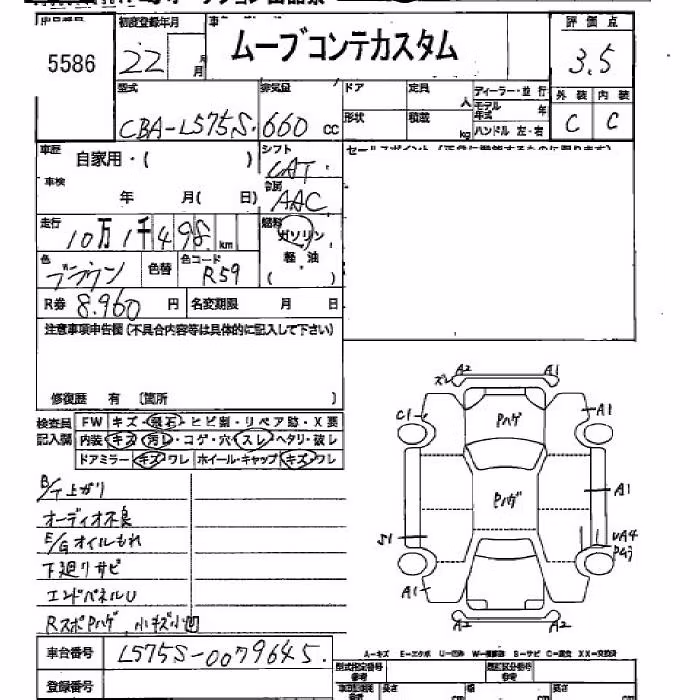 出品番号 初度登録年月 車名 評価点
5586 22 年 月 ムーブコンテカスタム 3.5
型式 排気量 ドア 定員 人 ディーラー・並行 外装 内装
CBA-L575S 660 cc 形状 積載 kg モデル年式 年 C C
ハンドル 左・右
車歴 自家用・( ) シフト CAT セールスポイント(正常に機能するものに限ります)
車検 年 月( 日) 冷房 AAC
走行 10万1千498 km 燃料 ガソリン
色 ブラウン 色替 色コード R59 軽油
( )
R券 8.960 円 名変期限 月 日
注意事項申告欄(不具合内容等は具体的に記入して下さい)
修復歴 有 〔箇所 〕
検査員 FW キズ・飛石・ヒビ割・リペア跡・X要
記入欄 内装 キズ・汚レ・コゲ・穴・スレ・ヘタリ・破レ
ドアミラー キズ・ワレ ホイール・キャップ キズ・ワレ
B/T上がり
オーディオ不良
E/Gオイルもれ
下廻りサビ
エンドパネルU
RスポPハゲ、小キズ小凹
ズレ A2 A1
C1 Pハゲ A1
Pハゲ A1
S1 UA4
A1
A2 A2
車台番号 L575S-0079645
A-キズ E-エクボ U-凹み W-補修跡 S-サビ C-腐食 XX-交換済
登録番号 型式指定番号 類別区分番号
長さ cm 幅 cm 高さ cm